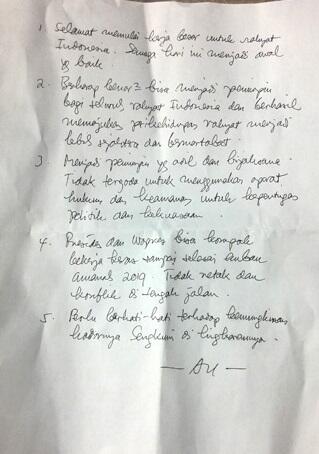 1. Selamat memulai kerja besar untuk rakyat
Indonesia. Semoga hari ini menjadi awal
yg baik
2. Berharap benar2 bisa menjadi pemimpin
bagi seluruh rakyat Indonesia dan berhasil
memajukan perikehidupan rakyat menjadi
lebih sejahtera dan bermartabat.
3. Menjadi pemimpin yg adil dan bijaksana.
Tidak tergoda untuk menggunakan aparat
hukum dan keamanan untuk kepentingan
politik dan kekuasaan.
4. Presiden dan Wapres bisa kompak
bekerja keras sampai selesai emban
amanat 2019. Tidak retak dan
konflik di tengah jalan.
5. Perlu berhati-hati terhadap kemungkinan
hadirnya Sengkuni di lingkarannya.
— AU —